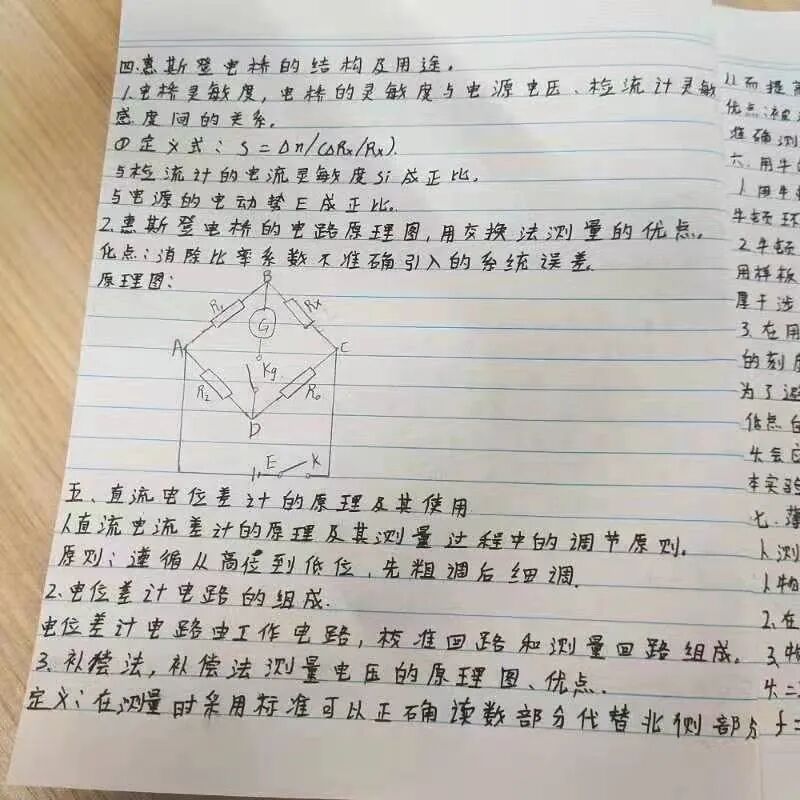 四.惠斯登电桥的结构及用途。
1.电桥灵敏度,电桥的灵敏度与电源电压、检流计灵敏
感度间的关系。
①定义式:S=Δn/(ΔRx/Rx).
与检流计的电流灵敏度Si成正比。
与电源的电动势E成正比。
2.惠斯登电桥的电路原理图,用交换法测量的优点。
优点:消除比率系数不准确引入的系统误差.
原理图:
B
R1
Rx
G
A
C
Kg
R2
R0
D
E
K
五、直流电位差计的原理及其使用
1.直流电流差计的原理及其测量过程中的调节原则.
原则:遵循从高位到低位,先粗调后细调.
2.电位差计电路的组成.
电位差计电路由工作电路,校准回路和测量回路组成.
3.补偿法,补偿法测量电压的原理图、优点.
定义:在测量时采用标准可以正确读数部分代替非侧部分
以而提高
优点:被
准确测
六.用牛
1.用牛顿
牛顿环
2.牛顿
用样板
属于涉
3.在用
的刻度
为了避
优点
失会
本实验
七.薄
1.测
1.物
2.在
3.物
f=